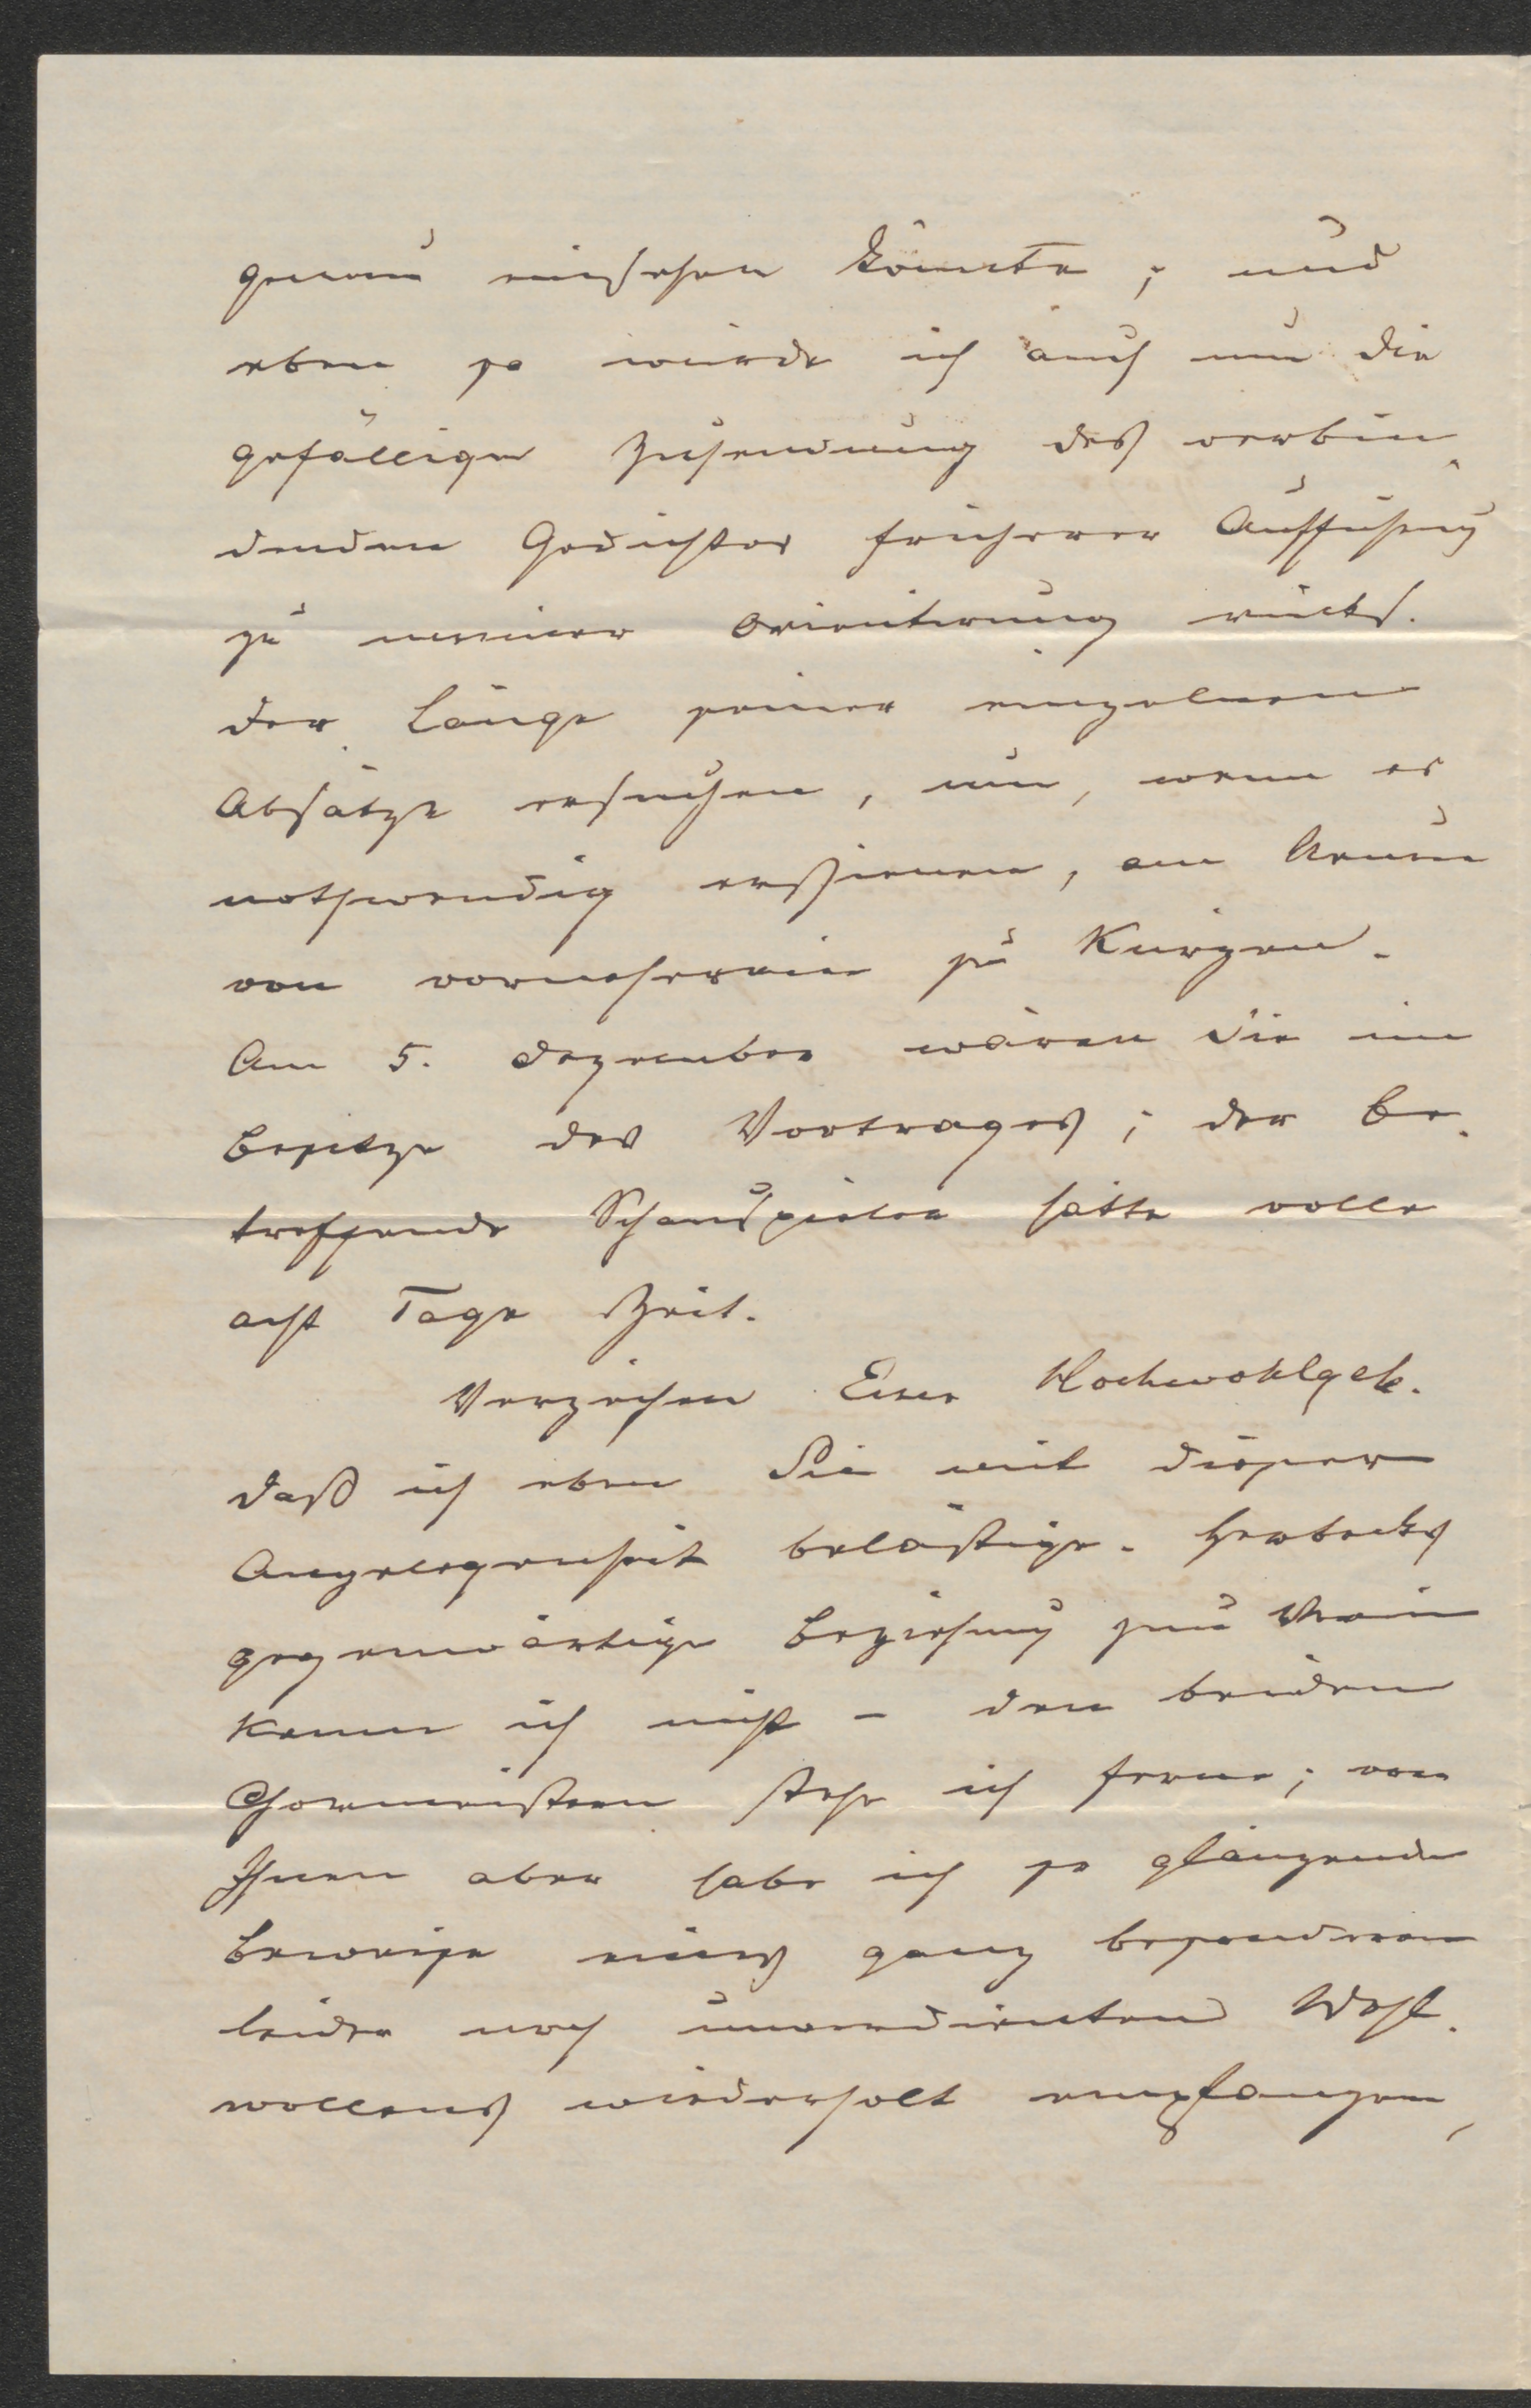 genau einsehen könnte; und
eben so würde ich auch um die
gefällige Zusendung des verbin-
denden Gedichtes früherer Aufführung
zu meiner Orientirung rücks.
der Länge seiner einzelnen
Absätze ersuchen, um, wenn es
nothwendig erschienen, am
von vorneherein zu kürzen.
Am 5. Dezember wären Sie im
Besitze des Vortrages; der be-
treffende Schauspieler hätte volle
acht Tage Zeit.
Verzeihen Euer Hochwohlgeb.
daß ich eben Sie mit dieser
Angelegenheit belästige. Herbecks
gegenwärtige Beziehung zum Verein
kenne ich nicht – den beiden
Chormeistern stehe ich ferne; von
Ihnen aber habe ich so glänzende
Beweise eines ganz besonderen
leider noch unverdienten Wohl-
wollens wiederholt empfangen,